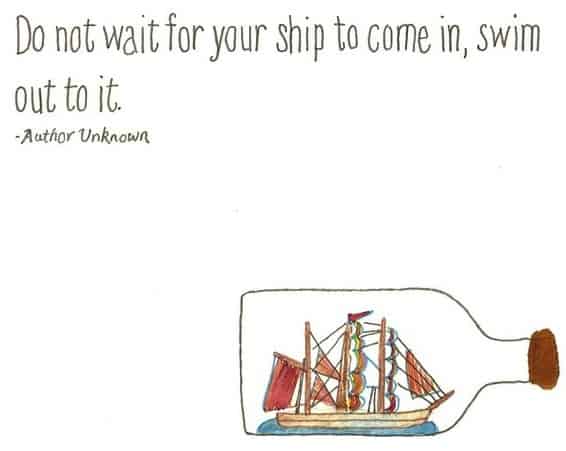 Do not wait for your ship to come in, swim
out to it.
-Author Unknown